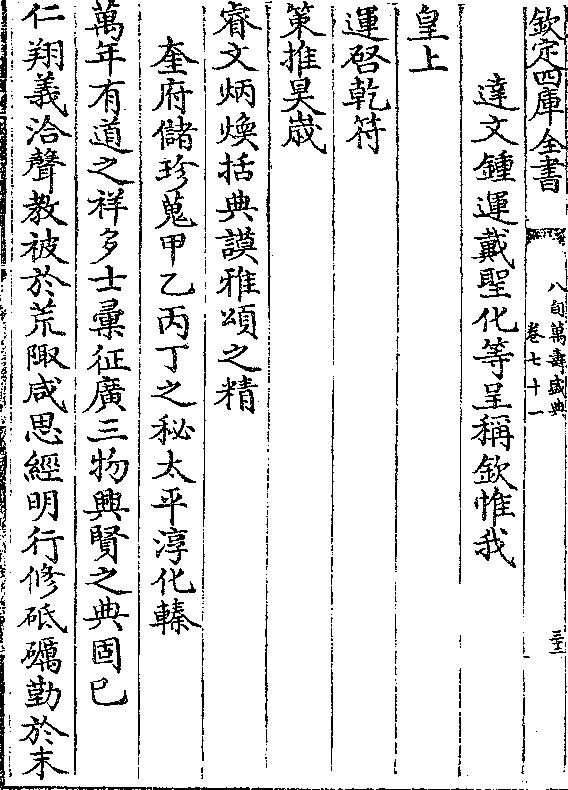 欽定四庫全書
八旬萬壽盛典
卷七十一
三十二
達文鍾運戴聖化等呈稱欽惟我
皇上
運啓乾符
策推昊歲
睿文炳煥括典謨雅頌之精
奎府儲珍蒐甲乙丙丁之秘太平淳化轃
萬年有道之祥多士彙征廣三物興賢之典固已
仁翔義洽聲教被於荒陬咸思經明行修砥礪勤於末